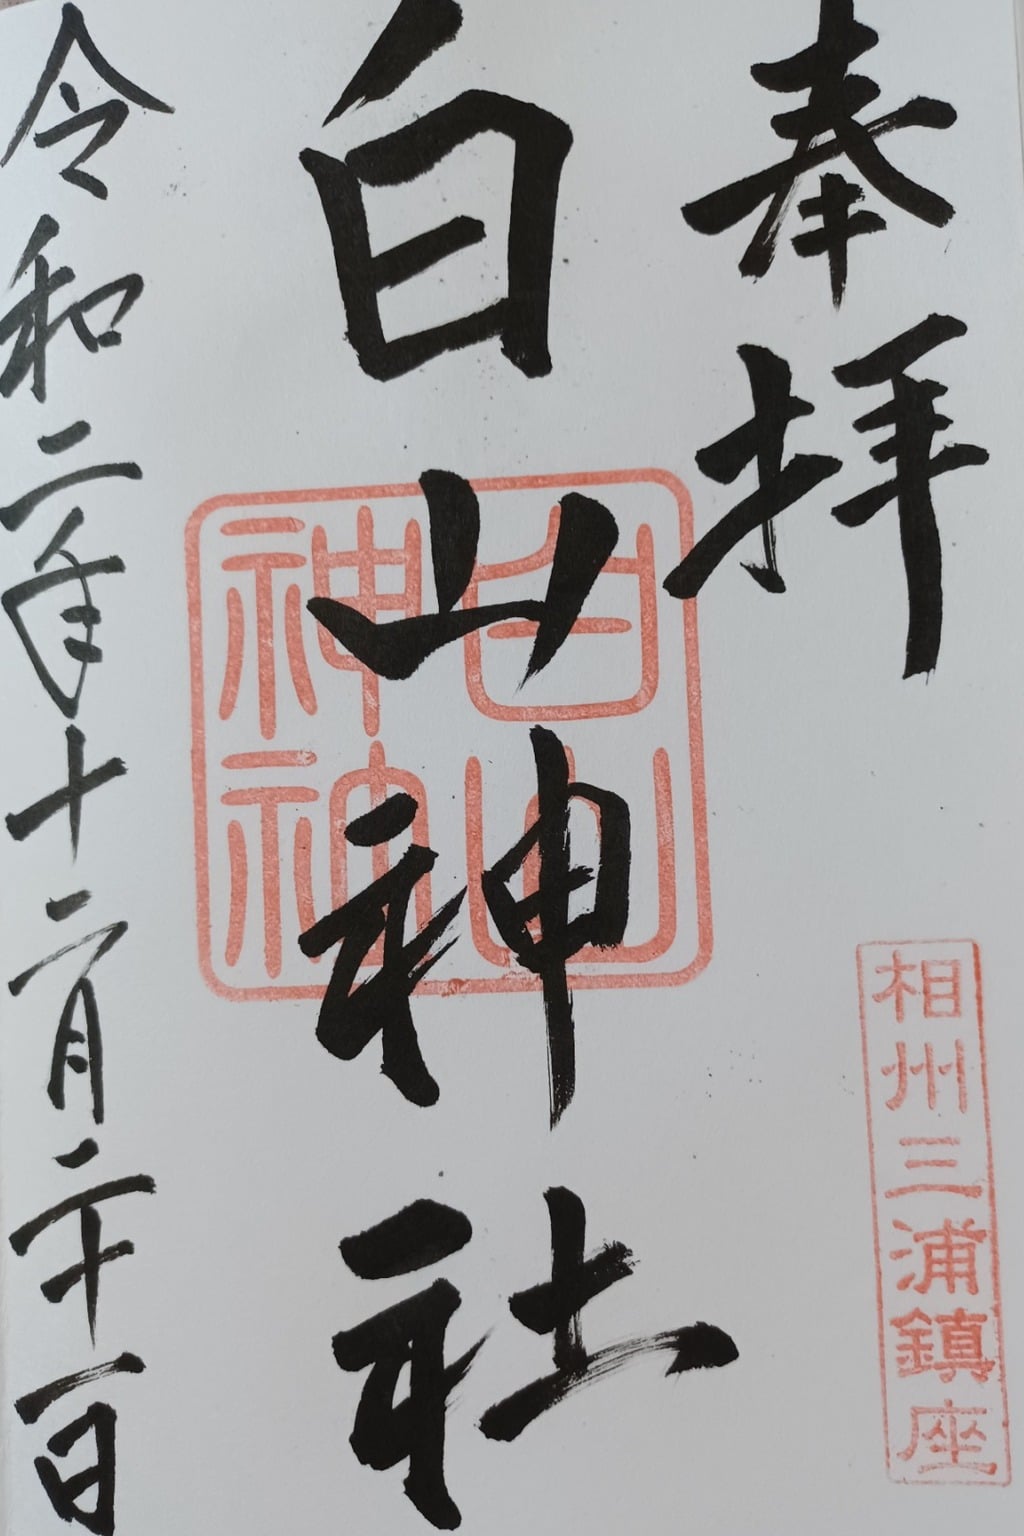 奉拝
相州三浦鎮座
白山神社
白山
神
令和二年十二月二十一日